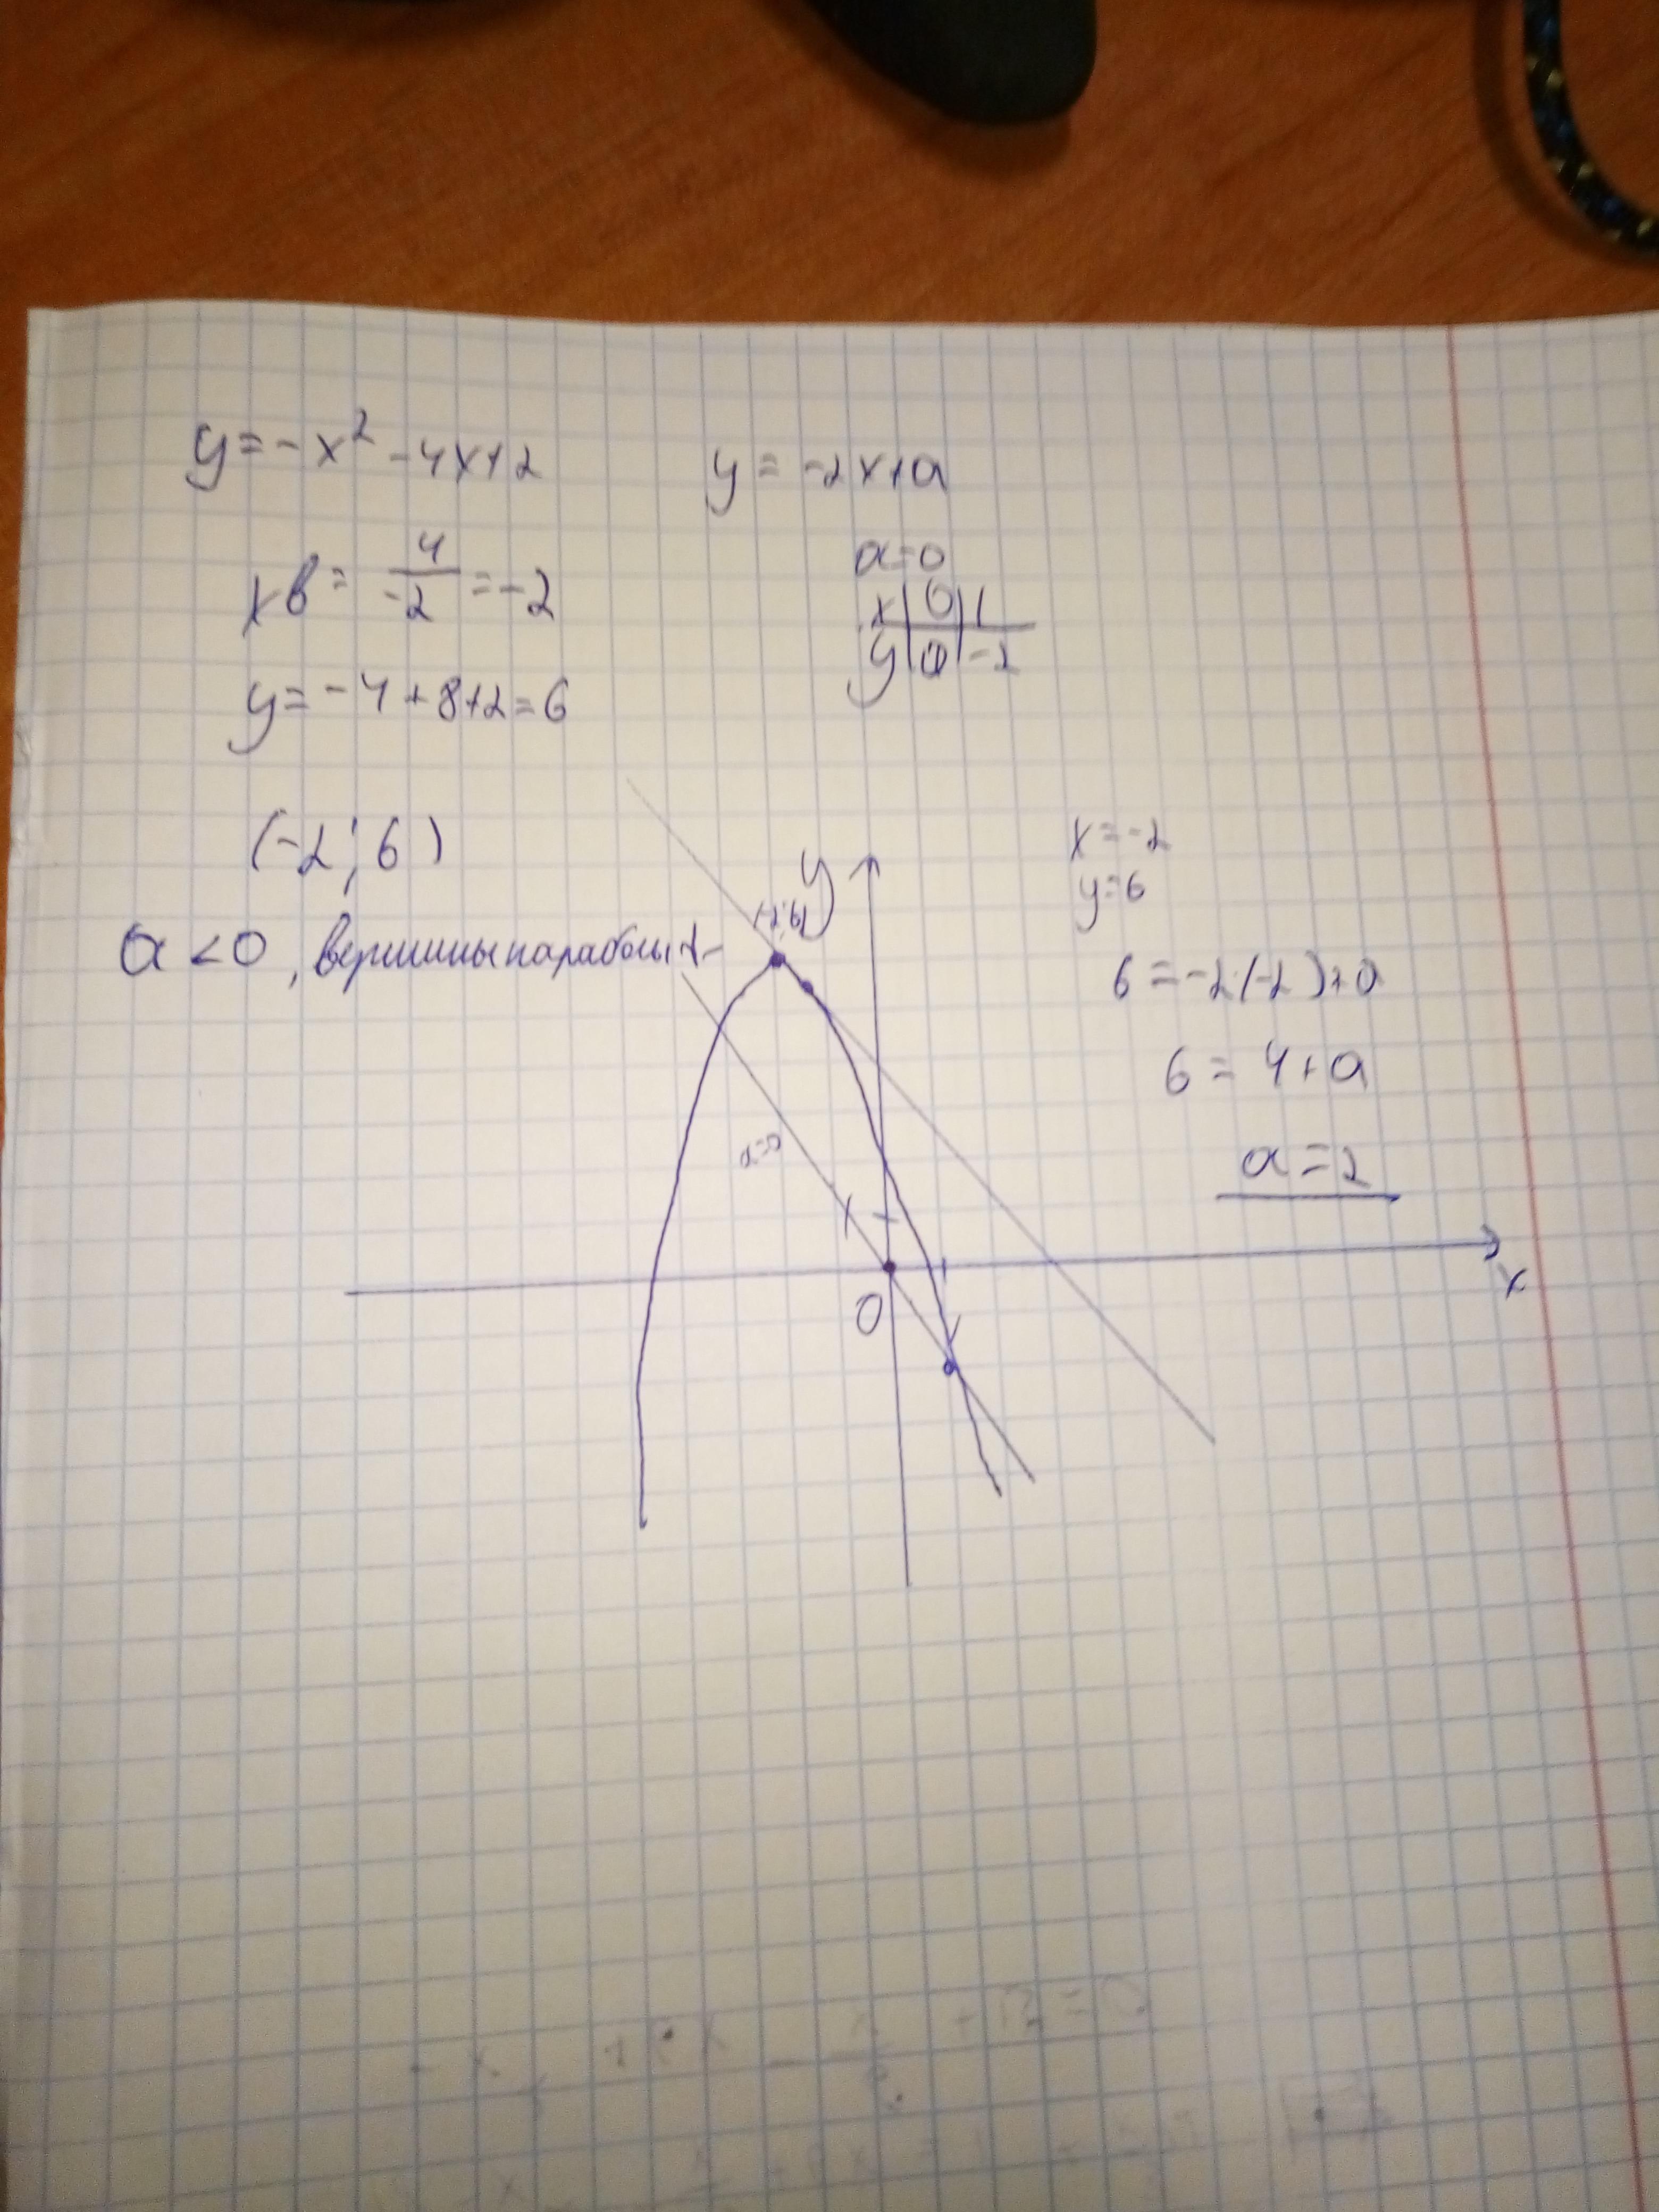 y = -x² - 4x + 2
xв = 4/-2 = -2
y = -4 + 8 + 2 = 6
(-2; 6)
a < 0, вершины параболы
y = -2x + a
a = 0
x | 0 | 1
y | 0 | -2
(-2; 6)
y
a = 0
0
x
x = -2
y = 6
6 = -2·(-2) + a
6 = 4 + a
a = 2